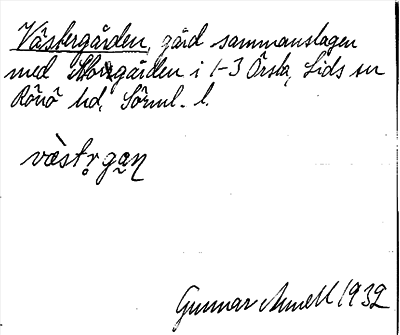 Västergården, gård sammanslagen
med Storgården i 1-3 Örsta, Lids sn
Rönö hd, Sörml. l.
væstr̥ ga̮n̥
Gunnar Amell 1932